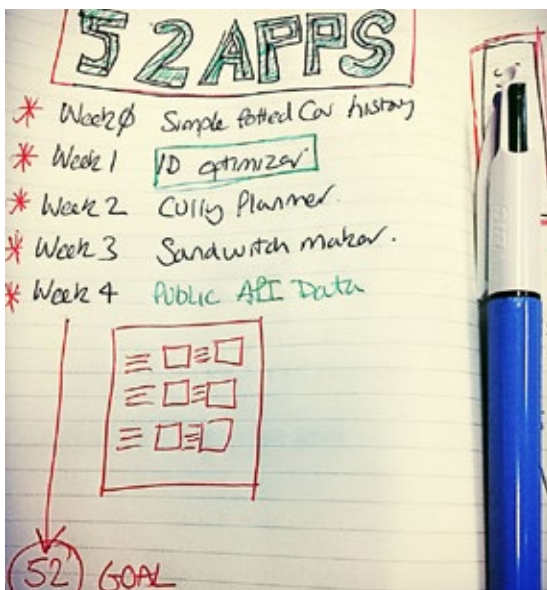 52 APPS
* Week 0 Simple Potted Car history
* Week 1 1D optimizer
* Week 2 Cully Planner.
* Week 3 Sandwitch maker.
* Week 4 Public API Data
52 GOAL